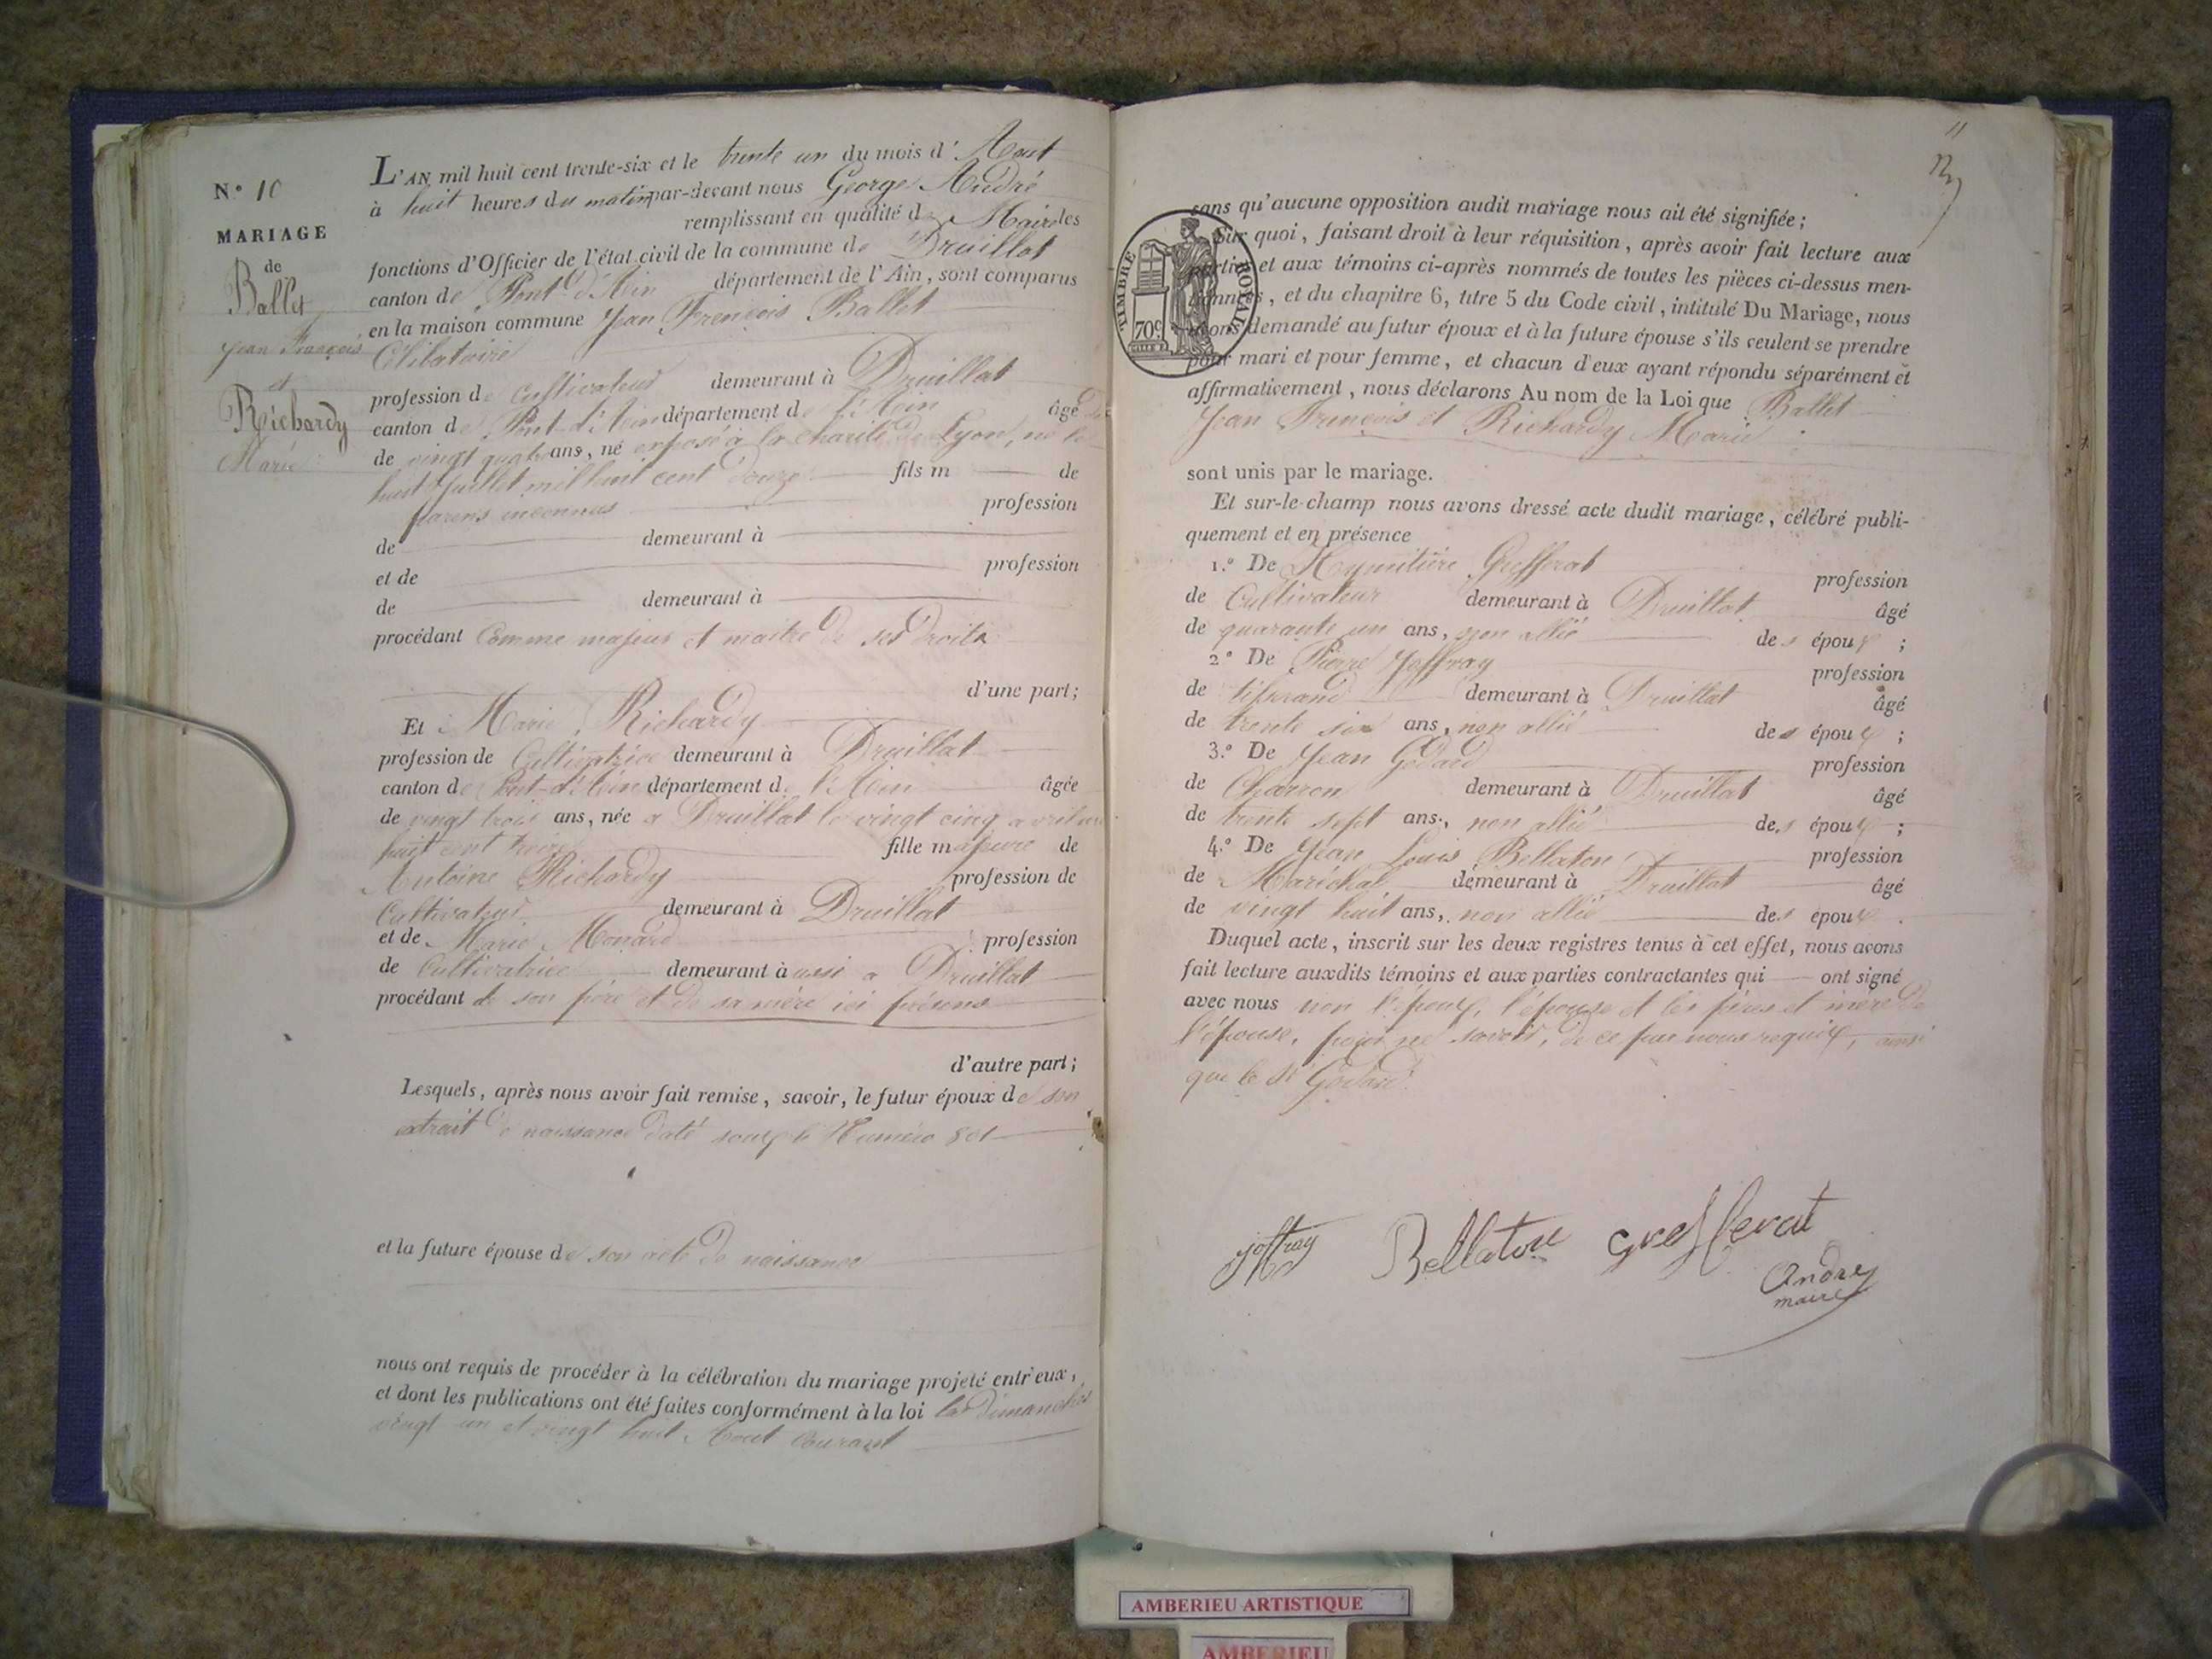 N.° 10
MARIAGE
de
Ballet
Jean François
et
Richardy
Marie
L'AN mil huit cent trente-six et le trente un du mois d'Aout
à huit heures du matin par-devant nous George André
remplissant en qualité de Maire les
fonctions d'Officier de l'état civil de la commune de Druillat
canton de Pont d'Ain département de l'Ain, sont comparus
en la maison commune Jean François Ballet
Célibataire
profession de Cultivateur demeurant à Druillat
canton de Pont-d'Ain département de l'Ain âgé
de vingt quatre ans, né exposé à la charité de Lyon, né le
huit Juillet mil huit cent douze fils m de
parens inconnus profession
de demeurant à
et de profession
de demeurant à
procédant Comme majeur et maitre de ses droits
d'une part;
Et Marie Richardy
profession de Cultivatrice demeurant à Druillat
canton de Pont-d'Ain département de l'Ain âgée
de vingt trois ans, née a Druillat le vingt cinq avril mil
huit cent treize fille majeure de
Antoine Richardy profession de
Cultivateur demeurant à Druillat
et de Marie Monard profession
de Cultivatrice demeurant à ussi a Druillat
procédant de son père et de sa mère ici présens
d'autre part;
Lesquels, après nous avoir fait remise, savoir, le futur époux de son
extrait de naissance daté sous le Numéro 801
et la future épouse de son acte de naissance
nous ont requis de procéder à la célébration du mariage projeté entr'eux,
et dont les publications ont été faites conformément à la loi les dimanches
vingt un et vingt huit Aout Courant
11
sans qu'aucune opposition audit mariage nous ait été signifiée;
Sur quoi, faisant droit à leur réquisition, après avoir fait lecture aux
parties et aux témoins ci-après nommés de toutes les pièces ci-dessus men-
tionnées, et du chapitre 6, titre 5 du Code civil, intitulé Du Mariage, nous
avons demandé au futur époux et à la future épouse s'ils veulent se prendre
pour mari et pour femme, et chacun d'eux ayant répondu séparément et
affirmativement, nous déclarons Au nom de la Loi que Ballet
Jean François et Richardy Marie
TIMBRE ROYAL
70c.
sont unis par le mariage.
Et sur-le-champ nous avons dressé acte dudit mariage, célébré publi-
quement et en présence
1.° De Grefferat profession
de Cultivateur demeurant à Druillat âgé
de quarante un ans, non allié des époux;
2.° De Pierre Joffray profession
de tisserand demeurant à Druillat âgé
de trente six ans, non allié des époux;
3.° De Jean Godard profession
de Charron demeurant à Druillat âgé
de trente sept ans, non allié des époux;
4.° De Jean Louis Bellaton profession
de Maréchal demeurant à Druillat âgé
de vingt huit ans, non allié des époux.
Duquel acte, inscrit sur les deux registres tenus à cet effet, nous avons
fait lecture auxdits témoins et aux parties contractantes qui ont signé
avec nous non l'époux, l'épouse et les père et mère de
l'épouse, pour ne savoir, de ce par nous requis, ainsi
que le Sr Godard.
joffray Bellaton grefferat
andre
maire
AMBERIEU ARTISTIQUE
AMBERIEU